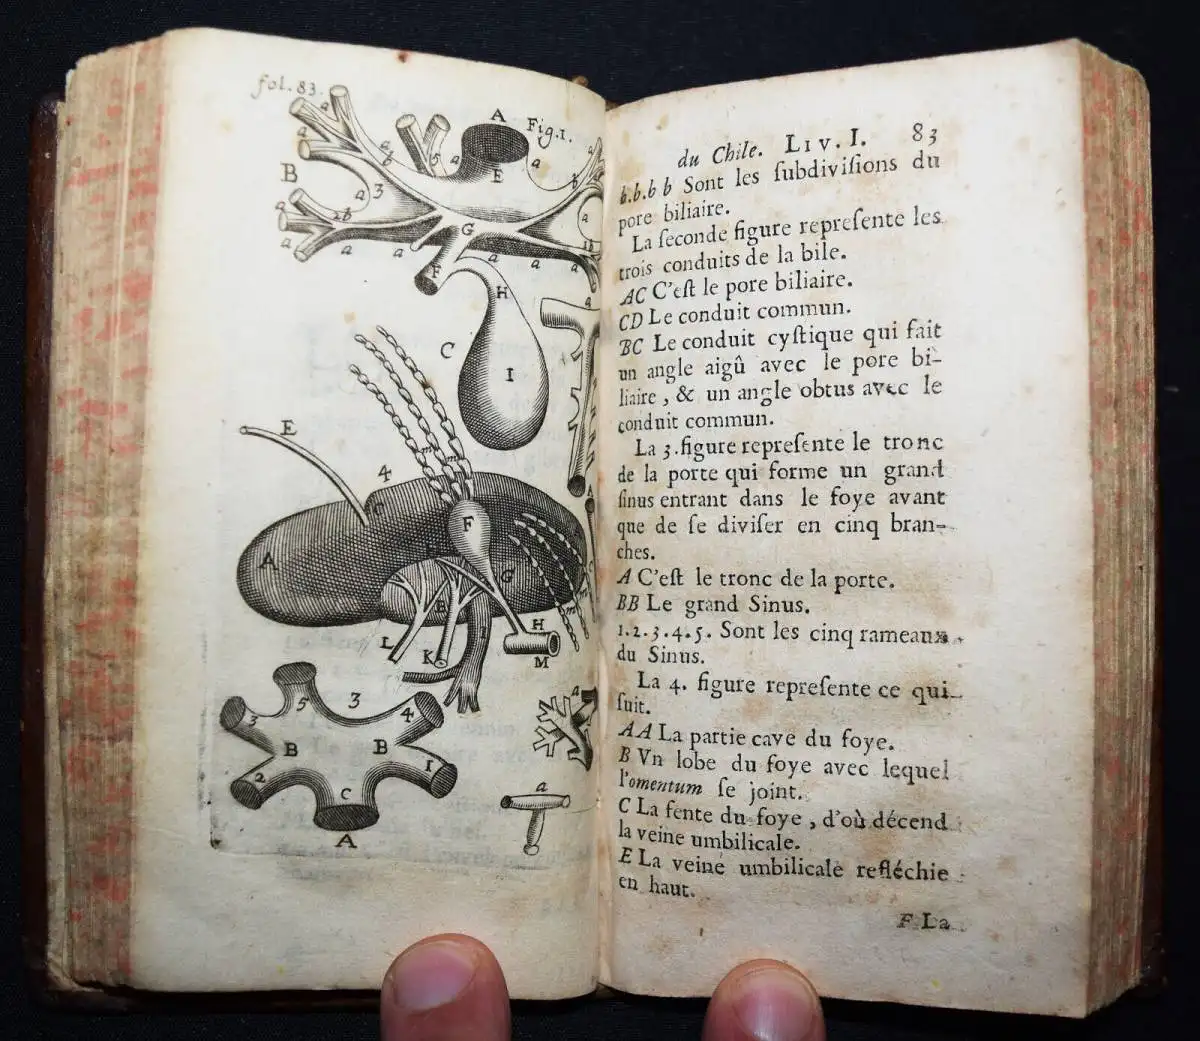 fol. 83.
Fig. 1.
A
a
a
B
b
3
5
E
2b
G
F
H
C
I
E
4
m
C
A
F
G
H
L
K
I
M
m
a
3
5
3
4
B
B
2
1
C
A
a
du Chile. LIV. I. 83
b.b.b b Sont les ſubdiviſions du
pore biliaire.
La ſeconde figure repreſente les
trois conduits de la bile.
AC C'eſt le pore biliaire.
CD Le conduit commun.
BC Le conduit cyſtique qui fait
un angle aigû avec le pore bi-
liaire, & un angle obtus avec le
conduit commun.
La 3. figure repreſente le tronc
de la porte qui forme un grand
ſinus entrant dans le foye avant
que de ſe diviſer en cinq bran-
ches.
A C'eſt le tronc de la porte.
BB Le grand Sinus.
1.2.3.4.5. Sont les cinq rameaux
du Sinus.
La 4. figure repreſente ce qui
ſuit.
AA La partie cave du foye.
B Vn lobe du foye avec lequel
l'omentum ſe joint.
C La fente du foye, d'où décend
la veine umbilicale.
E La veine umbilicale refléchie
en haut.
F La